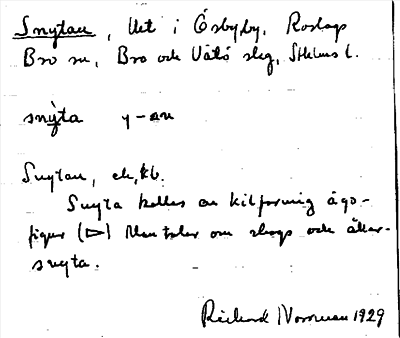 Snytan, Urt i Ösbyby, Roslags
Bro sn, Bro och Vätö skg, Sthlms l.
sny̍ta y-an
Snytan, ek.kb.
Snyta kallas en kilformig ägo-
figur (▷) Man talar om skogs och åker-
snyta.
Rickard Norrman 1929